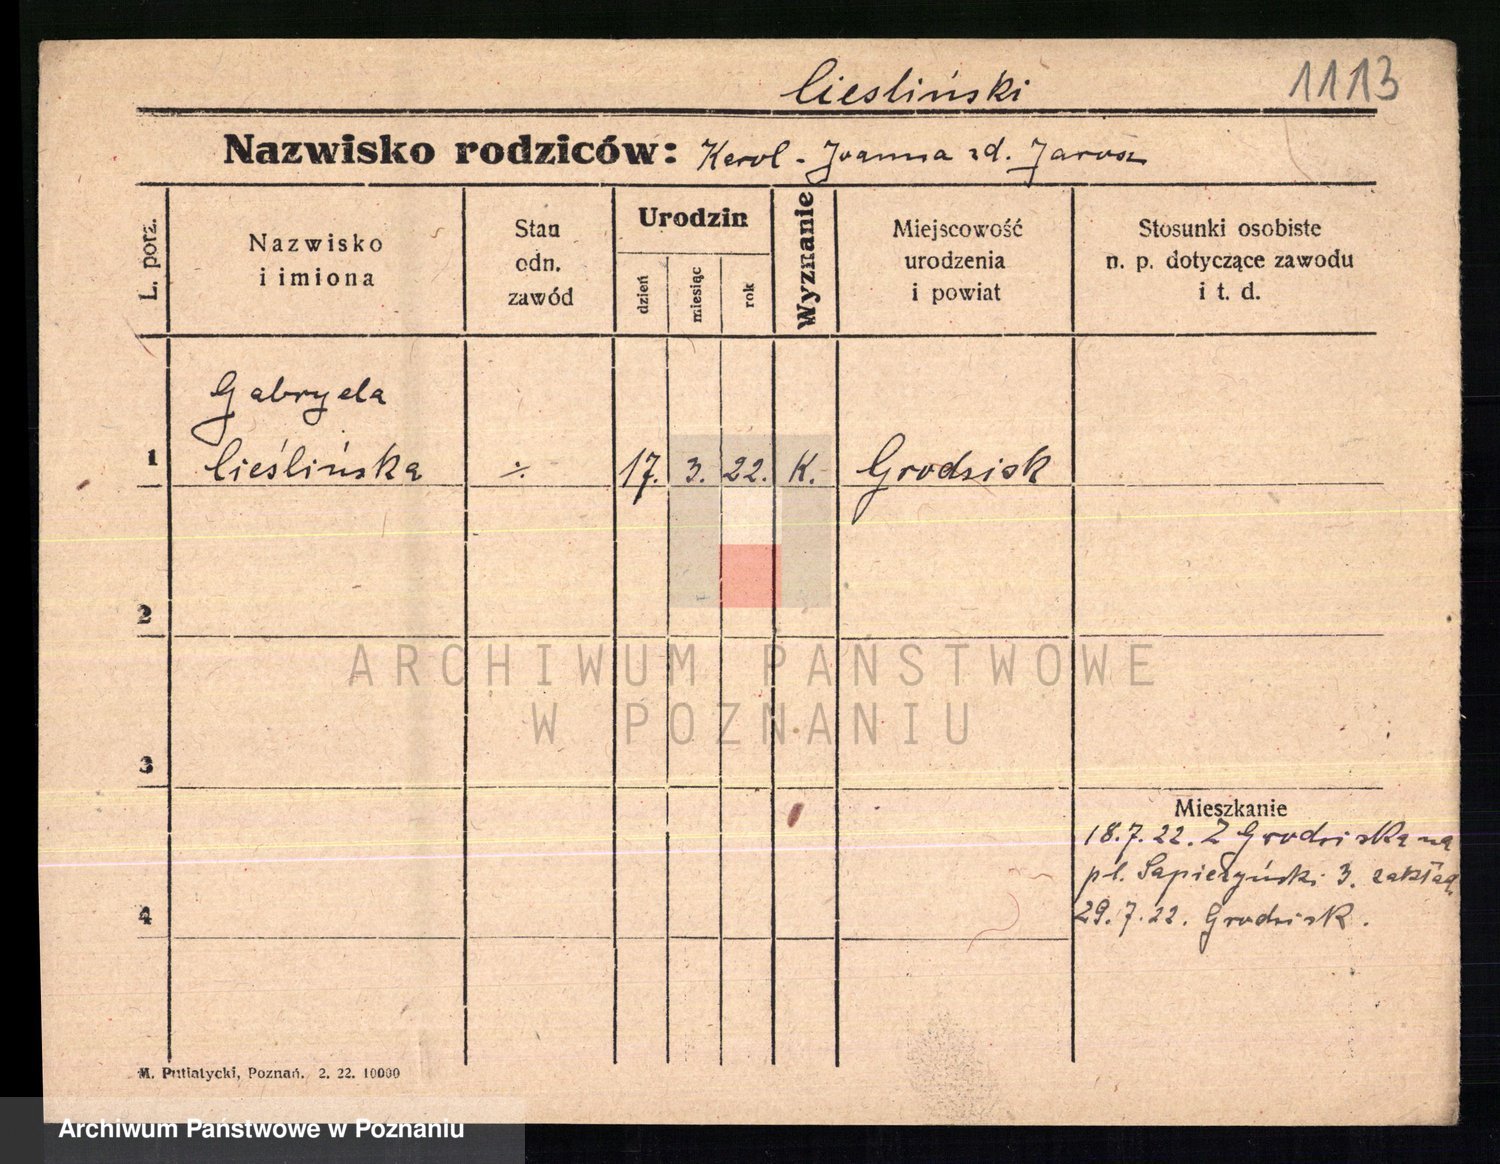 Ciesliński
1113
Nazwisko rodziców: Karol - Joanna zd. Jarosz
L. porz.
Nazwisko
i imiona
Stan
odn.
zawód
Urodzin
dzień
miesiąc
rok
Wyznanie
Miejscowość
urodzenia
i powiat
Stosunki osobiste
n. p. dotyczące zawodu
i t. d.
Gabryela
1 Cieślińska ÷ 17. 3. 22. K. Grodzisk
2
ARCHIWUM PAŃSTWOWE
W POZNANIU
3
Mieszkanie
18.7.22. Z Grodziska na
pl. Sapieżyński 3. zakład.
4
29.7.22. Grodzisk.
M. Putiatycki, Poznań. 2. 22. 10000
Archiwum Państwowe w Poznaniu